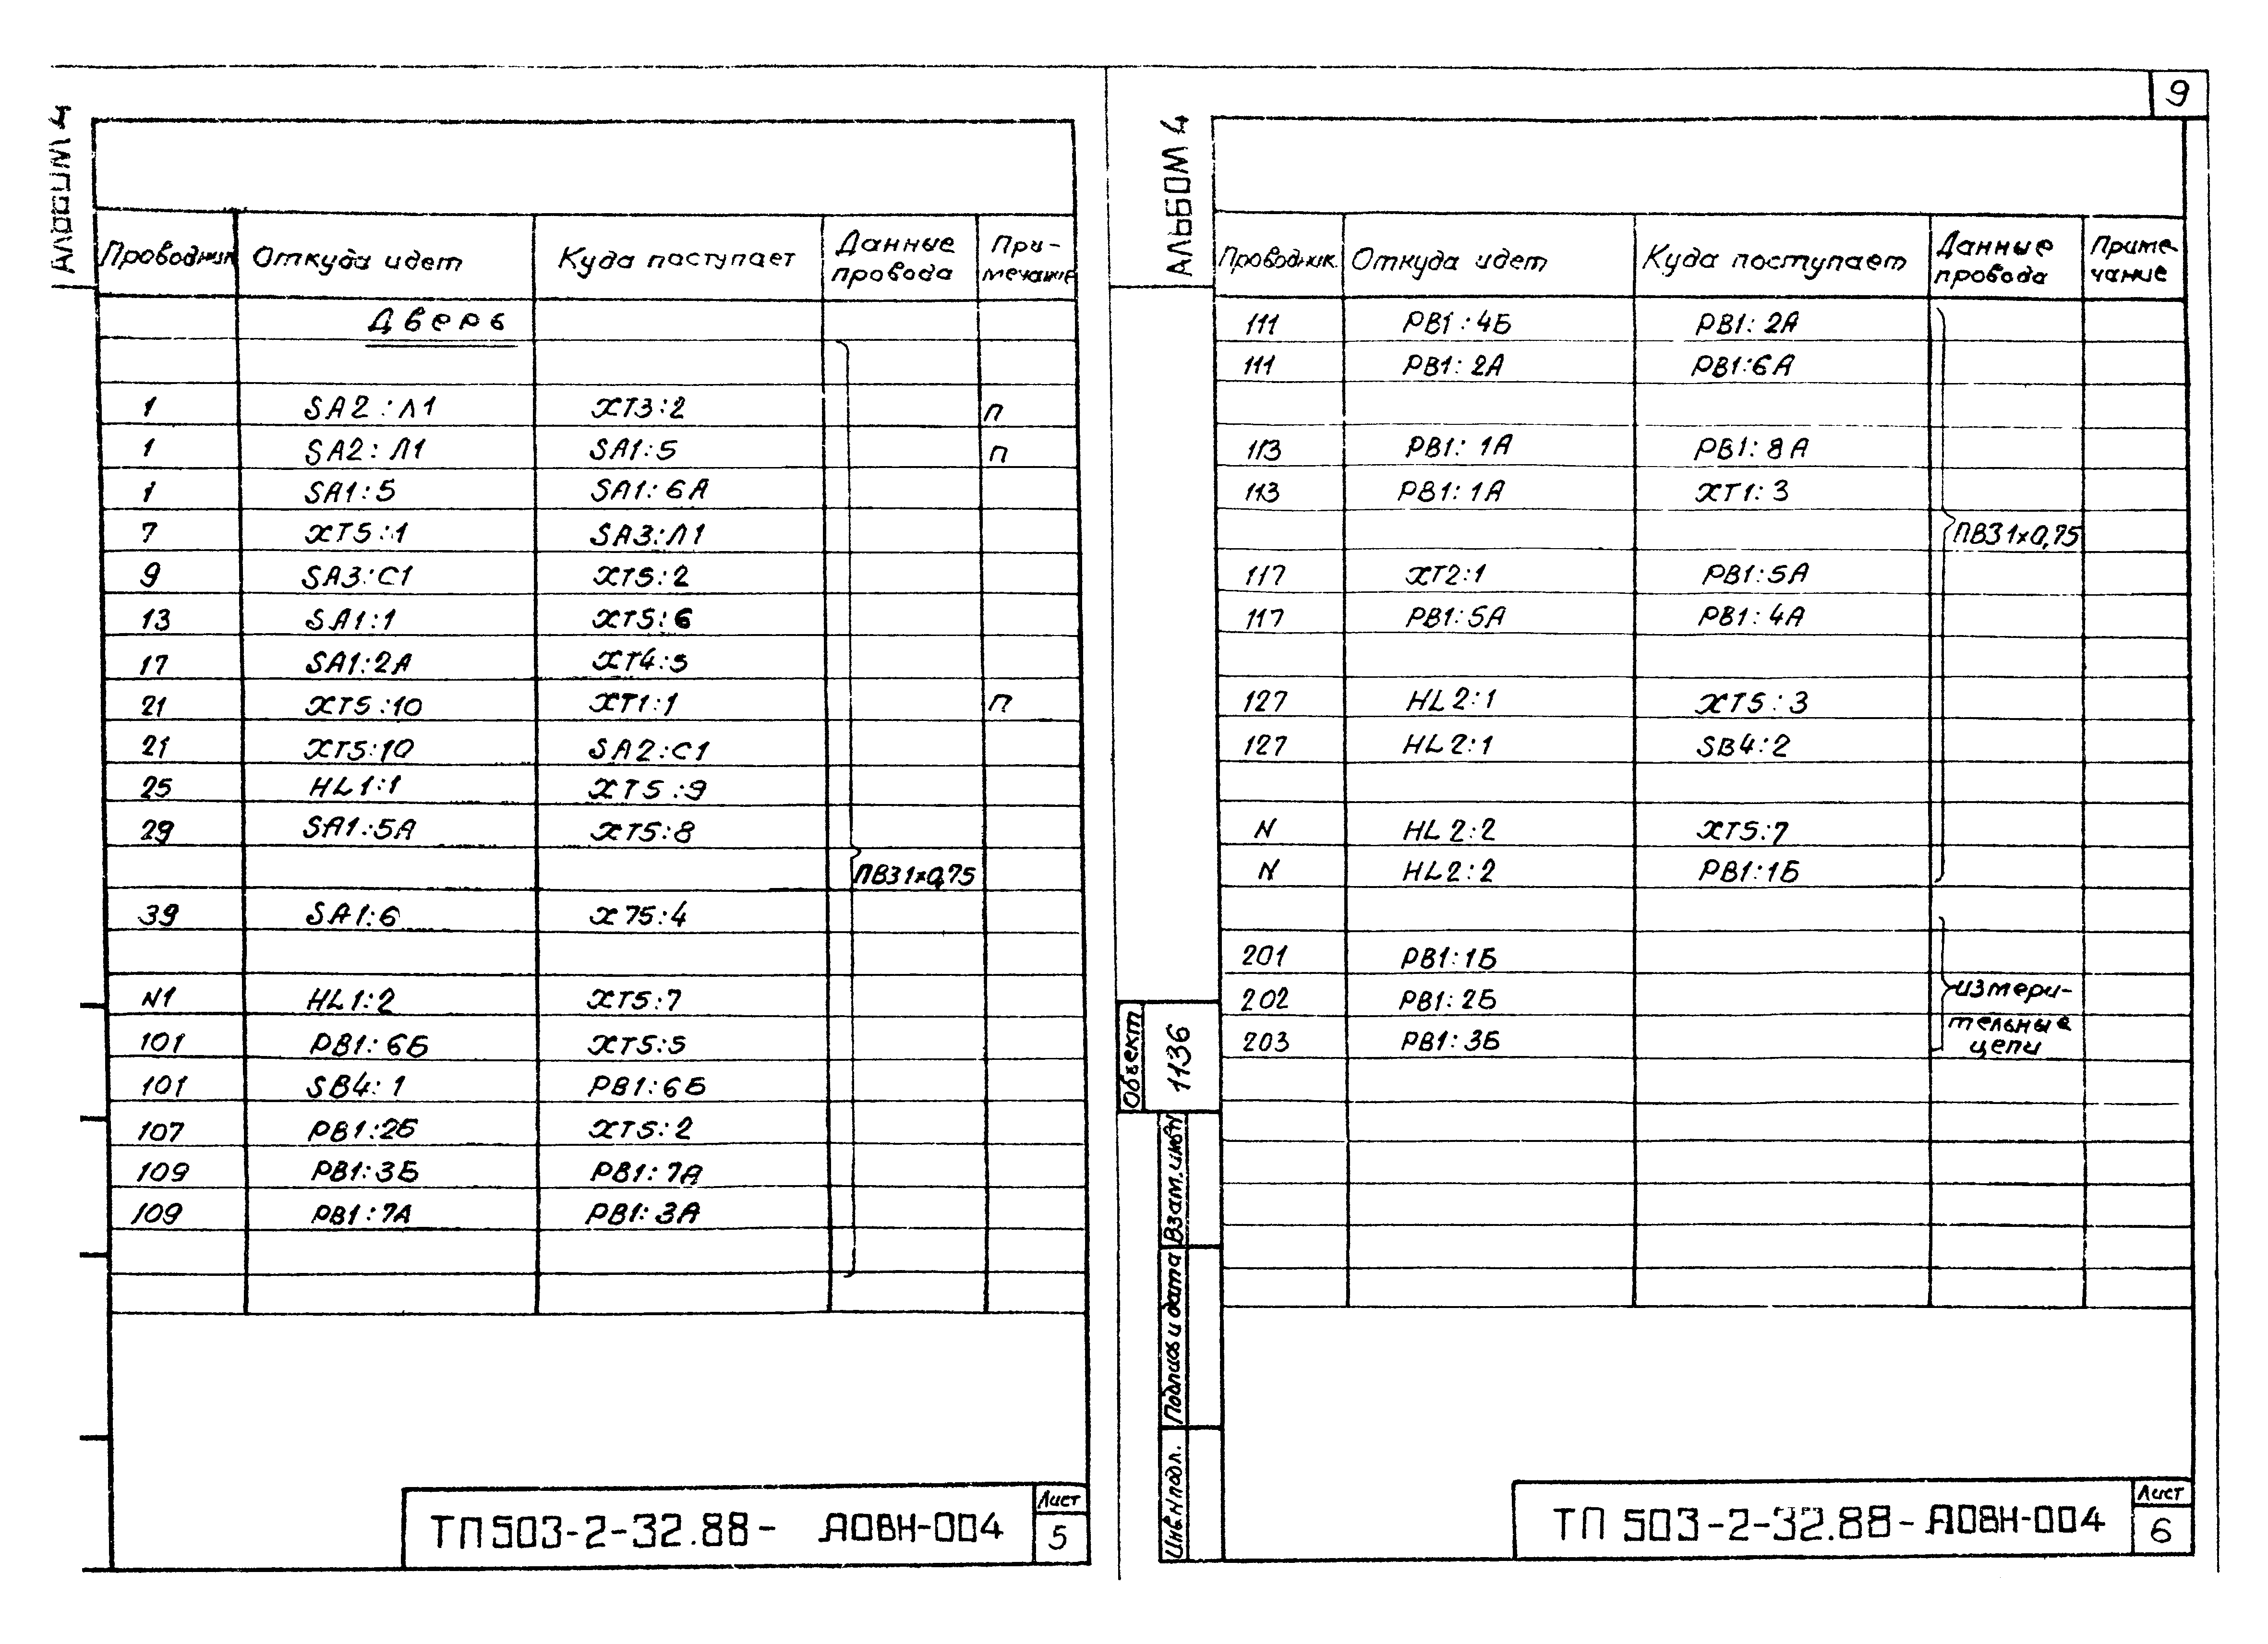 АЛЬБОМ 4
Проводник Откуда идет Куда поступает Данные провода При-мечание
Дверь
1 SA2:Л1 XT3:2 П
1 SA2:Л1 SA1:5 П
1 SA1:5 SA1:6А
7 XT5:1 SA3:Л1
9 SA3:С1 XT5:2
13 SA1:1 XT5:6
17 SA1:2А XT4:5
21 XT5:10 XT1:1 П
21 XT5:10 SA2:С1
25 HL1:1 XT5:9
29 SA1:5А XT5:8
ПВ3 1×0,75
39 SA1:6 X75:4
N1 HL1:2 XT5:7
101 РВ1:6Б XT5:5
101 SB4:1 РВ1:6Б
107 РВ1:2Б XT5:2
109 РВ1:3Б РВ1:7А
109 РВ1:7А РВ1:3А
ТП 503-2-32.88- АОВН-004
Лист
5
9
АЛЬБОМ 4
Проводник. Откуда идет Куда поступает Данные провода Приме-чание
111 РВ1:4Б РВ1:2А
111 РВ1:2А РВ1:6А
113 РВ1:1А РВ1:8А
113 РВ1:1А XT1:3
ПВ3 1×0,75
117 XT2:1 РВ1:5А
117 РВ1:5А РВ1:4А
127 HL2:1 XT5:3
127 HL2:1 SB4:2
N HL2:2 XT5:7
N HL2:2 РВ1:1Б
201 РВ1:1Б
202 РВ1:2Б
203 РВ1:3Б
измери-
тельные
цепи
Объект
1136
Взам.инв.N
Подпись и дата
Инв.N подл.
ТП 503-2-32.88-АОВН-004
Лист
6